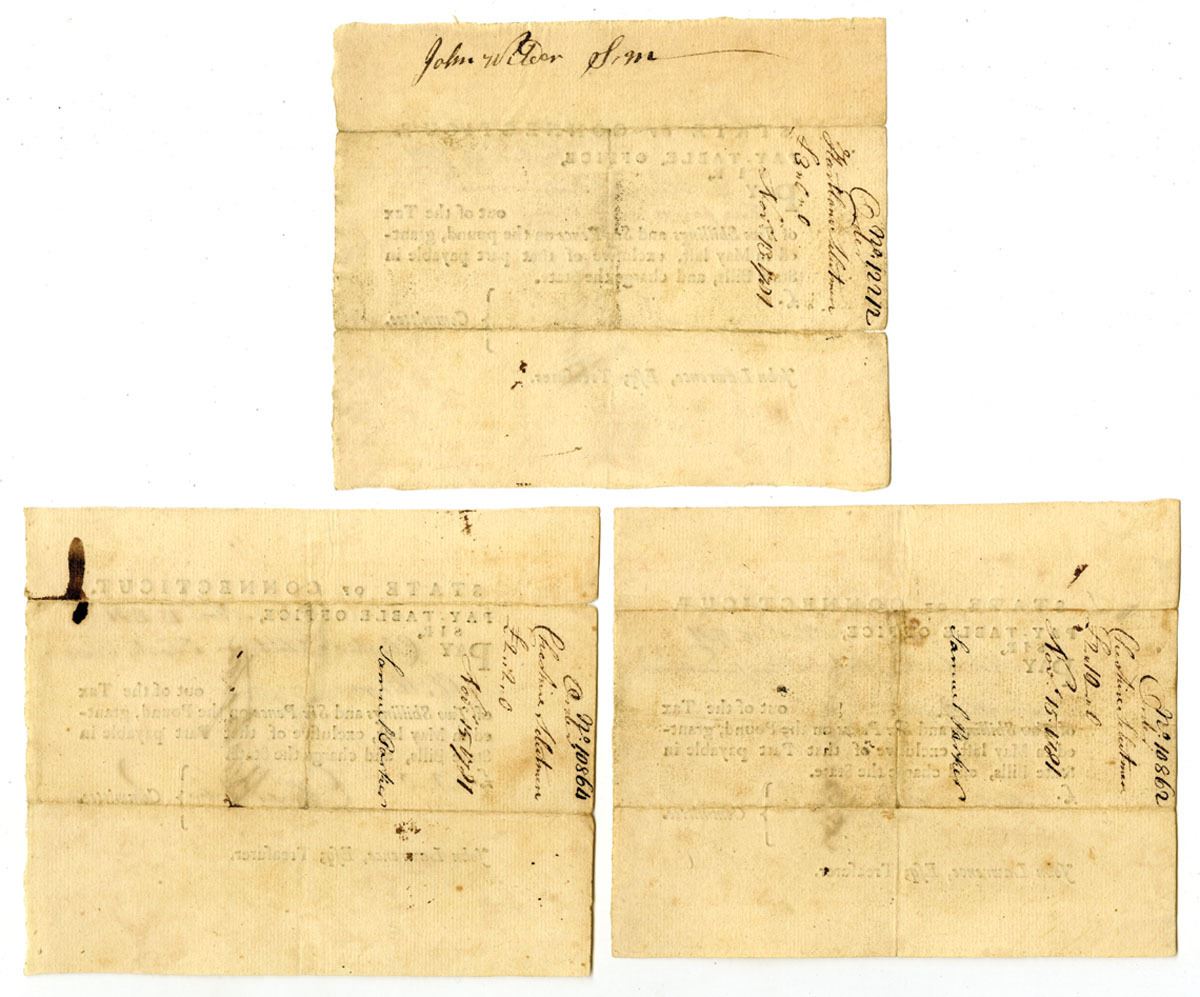 John Wilder Sr m
No. 12212
Order
Hartland Selectmen
£3 " 0 " 0
Novr. 15. 1781
STATE OF CONNECTICUT.
PAY-TABLE OFFICE,
SIR,
PAY
out of the Tax
of Two Shillings and Six Pence on the pound, grant-
ed in May last, exclusive of that part payable in
State Bills, and charge the State.
£.
Committee.
John Lawrence, Esq; Treasurer.
No. 10864
Order
Cheshire Selectmen
Novr. 15. 1781
Samuel Parker
STATE OF CONNECTICUT.
PAY-TABLE OFFICE,
SIR,
PAY
out of the Tax
of Two Shillings and Six Pence on the Pound, grant-
ed in May last, exclusive of that Part payable in
State Bills, and charge the State.
£.
Committee.
John Lawrence, Esq; Treasurer.
No. 10862
Order
Cheshire Selectmen
Novr. 15. 1781
Samuel Parker
STATE OF CONNECTICUT.
PAY-TABLE OFFICE,
SIR,
PAY
out of the Tax
of Two Shillings and Six Pence on the Pound, grant-
ed in May last, exclusive of that Part payable in
State Bills, and charge the State.
£.
Committee.
John Lawrence, Esq; Treasurer.